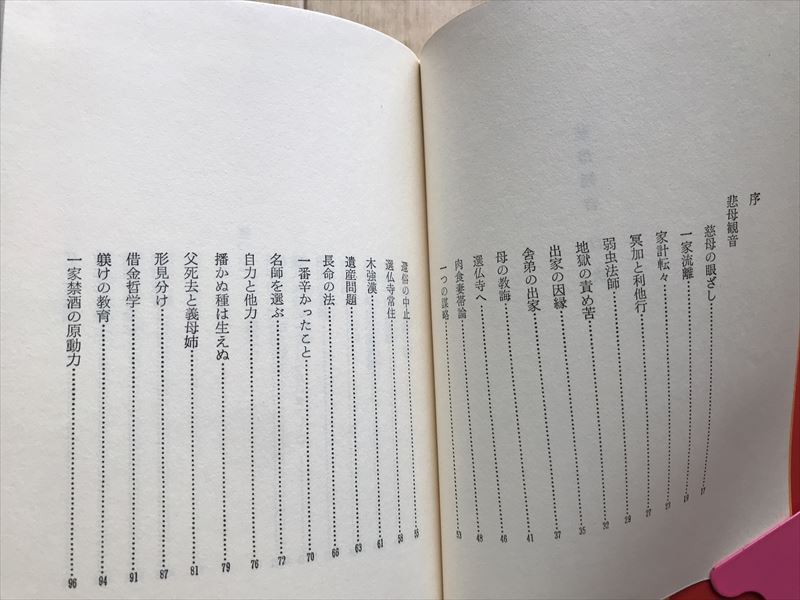 序
悲母観音
慈母の眼ざし……17
一家流離……19
家計転々……23
冥加と利他行……27
弱虫法師……29
地獄の責め苦……32
出家の因縁……35
舎弟の出家……37
母の教誨……41
選仏寺へ……46
肉食妻帯論……48
一つの謀略……53
還俗の中止……55
選仏寺常住……58
木強漢……61
遺産問題……63
長命の法……66
一番辛かったこと……70
名師を選ぶ……72
自力と他力……76
播かぬ種は生えぬ……79
父死去と義母姉……81
形見分け……87
借金哲学……91
躾けの教育……94
一家禁酒の原動力……96